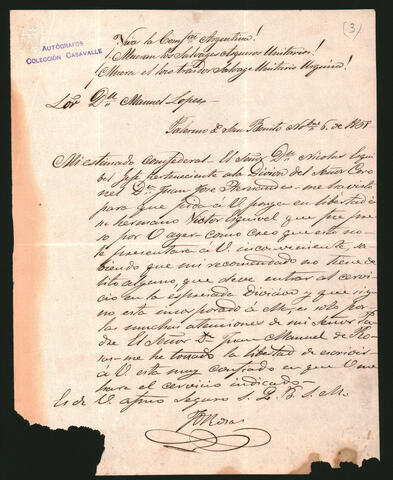 (3)
AUTÓGRAFOS
COLECCIÓN CASAVALLE
¡Viva la Confon Argentina!
¡Mueran los Salvages Asquerosos Unitarios!
¡Muera el loco traidor Salvage Unitario Urquiza!
Sor Dn Manuel Lopes
Palermo de San Benito 6. de
Mi estimado confederal - El Señor Dn Nicolas Esqui
bel Jefe perteneciente a la Divicion del Señor Coro
nel Dn Juan Jose Hernandes - me ha visto
para que pida á U ponga en libertad á
su hermano Victor Esquivel que fue pre
so por U ayer - como creo que esta no le
presentará á U inconveniente, sa
biendo que mi recomendado no tiene de
lito alguno, que deve entrar al cervi
cio en la espresada Divicion y que si
no esta encorporado á Mo, es solo por
las muchas atenciones de mi Señor Pa
dre El Señor Dn Juan Manuel de Ro
sas - me he tomado la libertad de escrivir
á U esta muy confiado en que U me
hara el cervicio indicado -
Es de U afmo Seguro S. Q. B. S. M.
Rosas